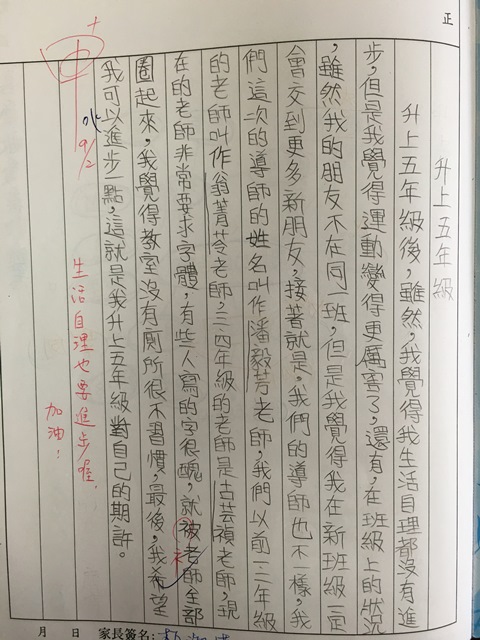 正
升上五年級
升上五年級後,雖然,我覺得我生活自理都沒有進
步,但是我覺得運動變得更厲害了,還有,在班級上的狀況
,雖然我的朋友不在同班,但是我覺得我在新班級一定
會交到更多新朋友,接著就是,我們的導師也不一樣,我
們這次的導師的姓名叫作潘毅芳老師,我們以前一二年級
的老師叫作翁菁苓老師,三、四年級的老師是古芸禎老師,現
在的老師非常要求字體,有些人寫的字很醜,就被老師全部
圈起來,我覺得教室沒有廁所很不習慣,最後,我希望
我可以進步一點,這就是我升上五年級對自己的期許。
甲+
9/2
生活自理也要進步喔!
加油!
月 日 家長簽名: